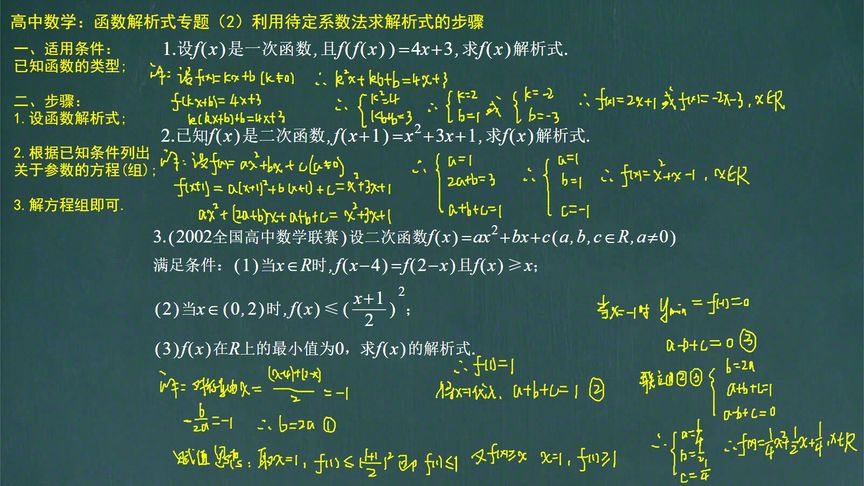 高中数学：函数解析式专题（2）利用待定系数法求解析式的步骤
一、适用条件：
已知函数的类型；
二、步骤：
1.设函数解析式；
2.根据已知条件列出
关于参数的方程(组)；
3.解方程组即可.
1.设f(x)是一次函数,且f(f(x))=4x+3,求f(x)解析式.
解：设f(x)=kx+b(k≠0) ∴k²x+kb+b=4x+3
f(kx+b)=4x+3 ∴{k²=4 kb+b=3 ∴{k=2 b=1 或 {k=-2 b=-3 ∴f(x)=2x+1或f(x)=-2x-3,x∈R
k(kx+b)+b=4x+3
2.已知f(x)是二次函数,f(x+1)=x²+3x+1,求f(x)解析式.
解：设f(x)=ax²+bx+c(a≠0)
f(x+1)=a(x+1)²+b(x+1)+c=x²+3x+1
ax²+(2a+b)x+a+b+c=x²+3x+1
∴{a=1 2a+b=3 a+b+c=1 ∴{a=1 b=1 c=-1 ∴f(x)=x²+x-1,x∈R
3.(2002全国高中数学联赛)设二次函数f(x)=ax²+bx+c(a,b,c∈R,a≠0)
满足条件：(1)当x∈R时,f(x-4)=f(2-x)且f(x)≥x;
(2)当x∈(0,2)时,f(x)≤((x+1)/2)²;
(3)f(x)在R上的最小值为0，求f(x)的解析式.
解：对称轴x=((x-4)+(2-x))/2=-1
-b/2a=-1 ∴b=2a ①
赋值思想：取x=1,f(1)≤((1+1)/2)²即f(1)≤1 又f(x)≥x x=1,f(1)≥1
∴f(1)=1
将x=1代入 a+b+c=1 ②
当x=-1时 ymin=f(-1)=0
a-b+c=0 ③
联立①②③{b=2a a+b+c=1 a-b+c=0
∴{a=1/4 b=1/2 c=1/4 ∴f(x)=1/4x²+1/2x+1/4,x∈R